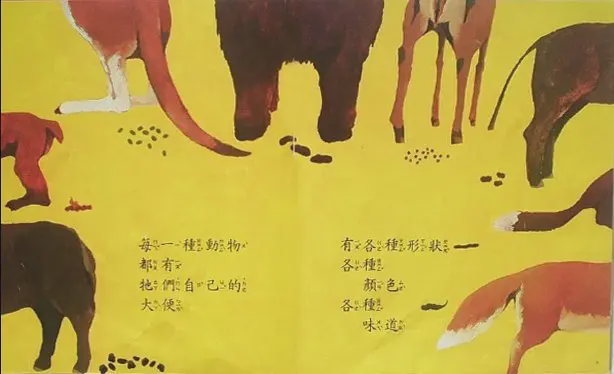 每一種動物
都有
牠們自己的
大便
有各種形狀
各種
顏色
各種
味道